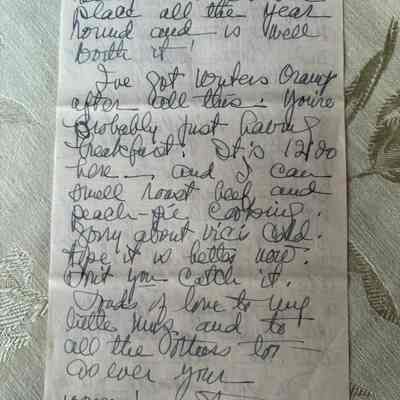 place all the year
round and is well
worth it!
I've got writers cramp
after all this. You're
probably just having
breakfast! It is 12:00
here — and I can
smell roast beef and
peach-pie cooking.
Sorry about Vici's cold.
Hope it is better now.
Don't you catch it.
Loads of love to my
little and to
all the others too
as ever your